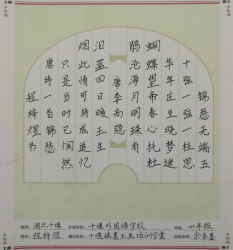 锦瑟无端五
十弦一弦一柱思
华年庄生晓梦迷
蝴蝶望帝春心托杜
鹃沧海月明珠有
唐李商隐
泪蓝田日暖玉生
烟此情可待成追忆
只是当时已惘然
唐诗一首锦瑟
程梓煜书
湖北十堰 十堰外国语学校 四年级
程梓煜 十堰瑞墨书画培训学堂